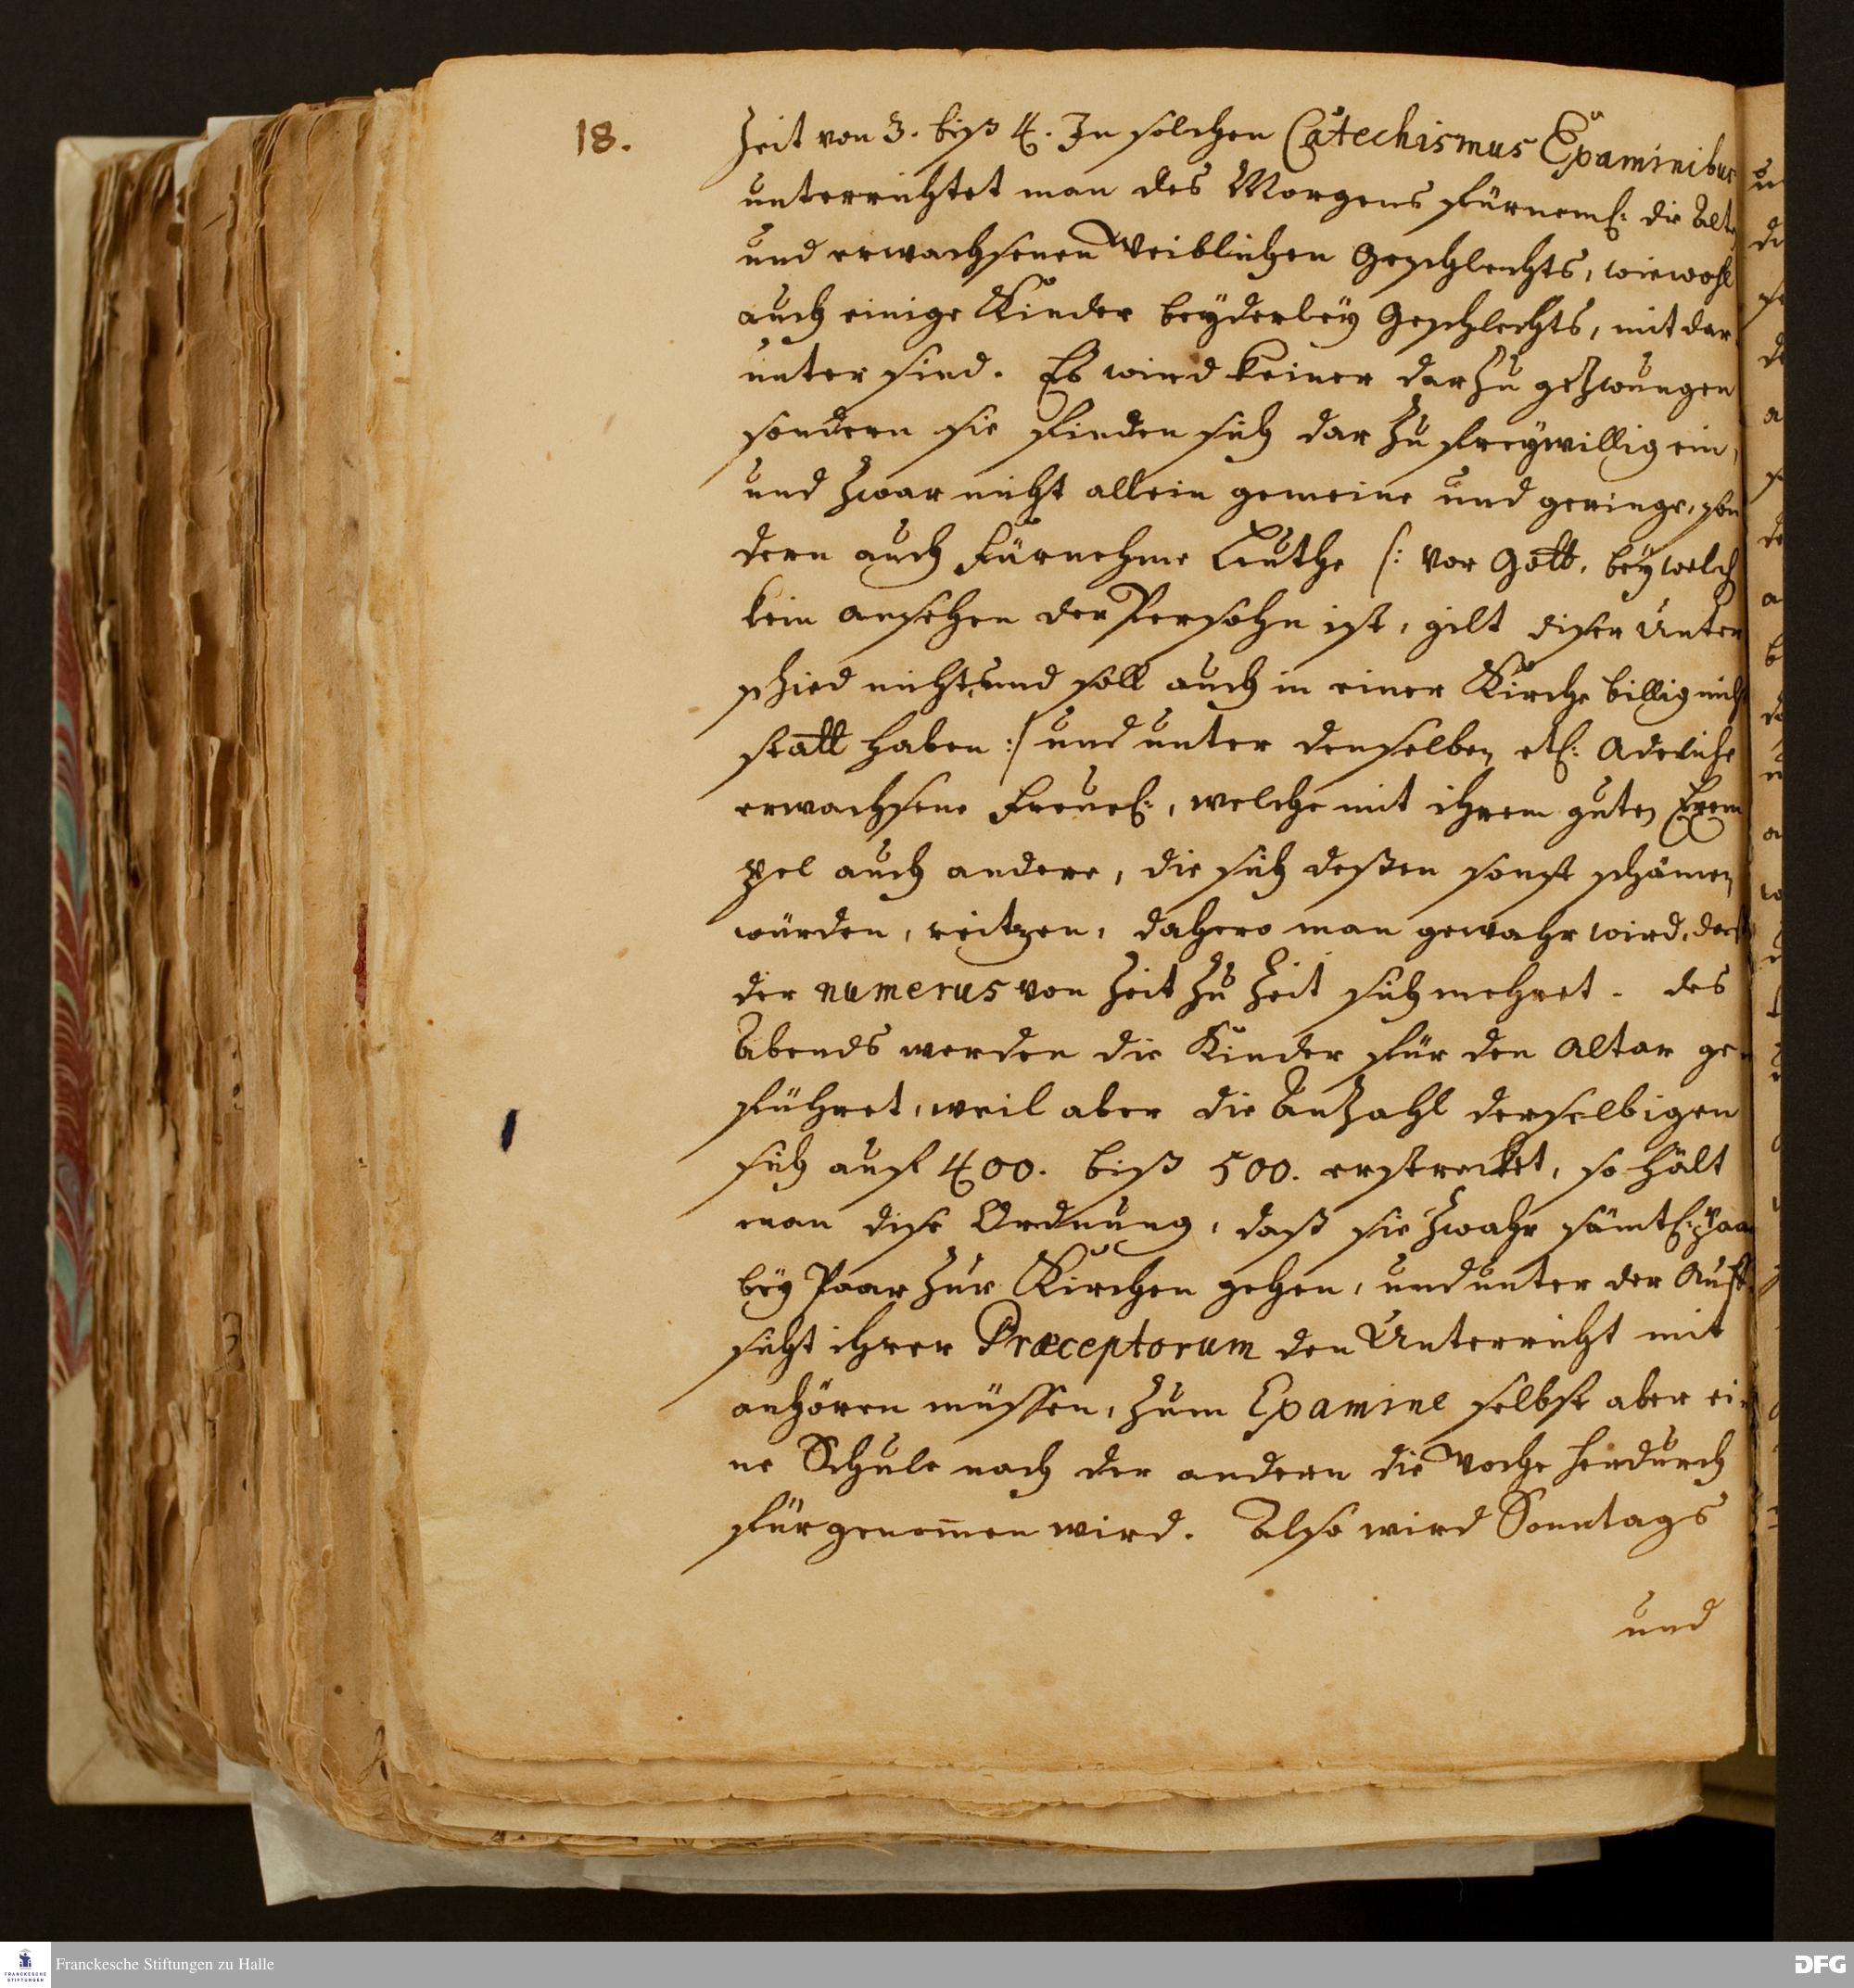 18.
Zeit von 3. biß 4. In solchen Catechismus Examinibus
unterrichtet man des Morgens fürneml: die Alte
und erwachsenen Weiblichen Geschlechts, wiewohl
auch einige Kinder beyderley Geschlechts, mit dar
unter sind. Es wird keiner darzu gezwungen
sondern sie finden sich dar zu freywillig ein,
und zwar nicht allein gemeine und geringe, son
dern auch fürnehme Leuthe /: vor Gott, bey welch
kein ansehen der Persohn ist, gilt diser Unter
schied nicht, und soll auch in einer Kirche billig nicht
statt haben :/ und unter denselben etl: Adeliche
erwachsene Freuel:, welche mit ihrem guten Exem
pel auch andere, die sich deßen sonst schämen
würden, reitzen, dahero man gewahr wird, daß
der numerus von Zeit zu Zeit sich mehret. des
Abends werden die Kinder für den Altar ge-
führet, weil aber die Anzahl derselbigen
sich auf 400. biß 500. erstrecket, so hält
man dise Ordnung, daß sie zwahr sämtl: paar
bey Paar zur Kirchen gehen, und unter der Auff
sicht ihrer Præceptorum den Unterricht mit
anhören müssen, zum Examine selbst aber ei-
ne Schule nach der andern die Woche hindurch
fürgenom̄en wird. Also wird Sonntags
und
Franckesche Stiftungen zu Halle
DFG